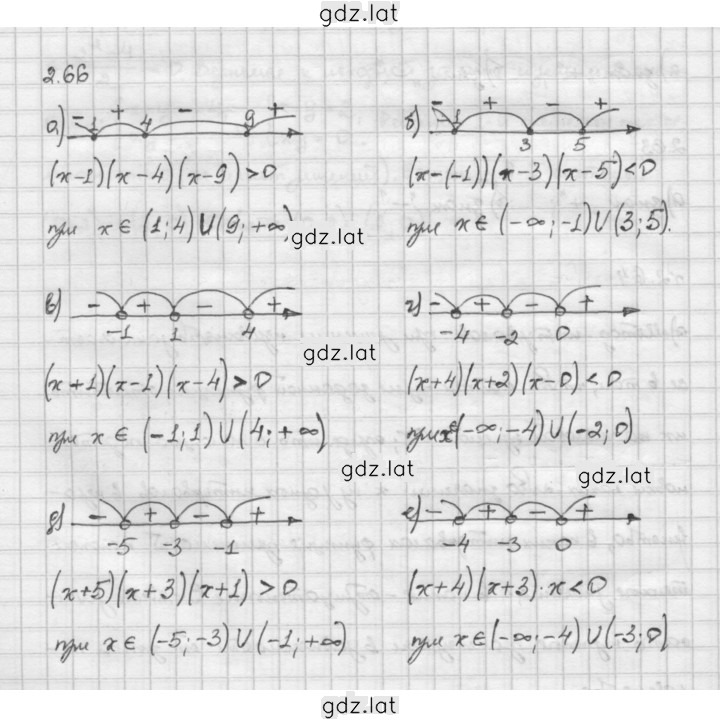 gdz.lat
2.66
а) - 1 + 4 - 9 +
б) - -1 + 3 - 5 +
(x-1)(x-4)(x-9)>0
(x-(-1))(x-3)(x-5)<0
при x∈(1;4)∪(9;+∞)
при x∈(-∞;-1)∪(3;5).
gdz.lat
в) - + - +
-1 1 4
г) - + - +
-4 -2 0
gdz.lat
(x+1)(x-1)(x-4)>0
(x+4)(x+2)(x-0)<0
при x∈(-1;1)∪(4;+∞)
при x∈(-∞;-4)∪(-2;0)
gdz.lat
gdz.lat
д) - + - +
-5 -3 -1
е) - + - +
-4 -3 0
(x+5)(x+3)(x+1)>0
(x+4)(x+3)·x<0
при x∈(-5;-3)∪(-1;+∞)
при x∈(-∞;-4)∪(-3;0)
gdz.lat